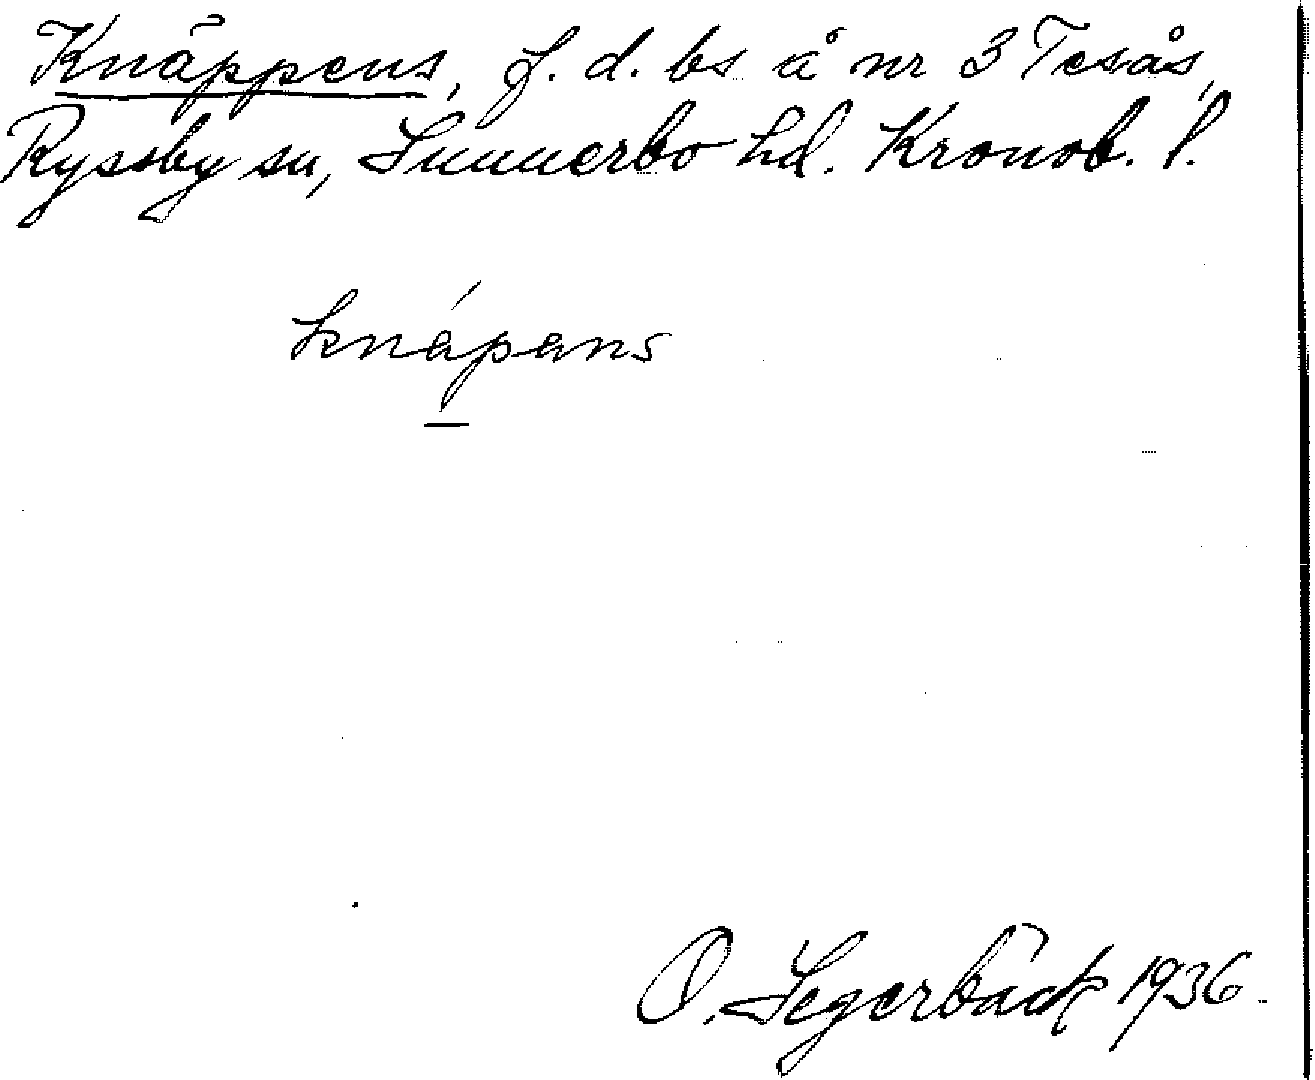 Knäppens, f. d. bs å nr 3 Tesås,
Ryssby sn, Sunnerbo hd. Kronob. l.
knápans
O. Segerbäck 1936.